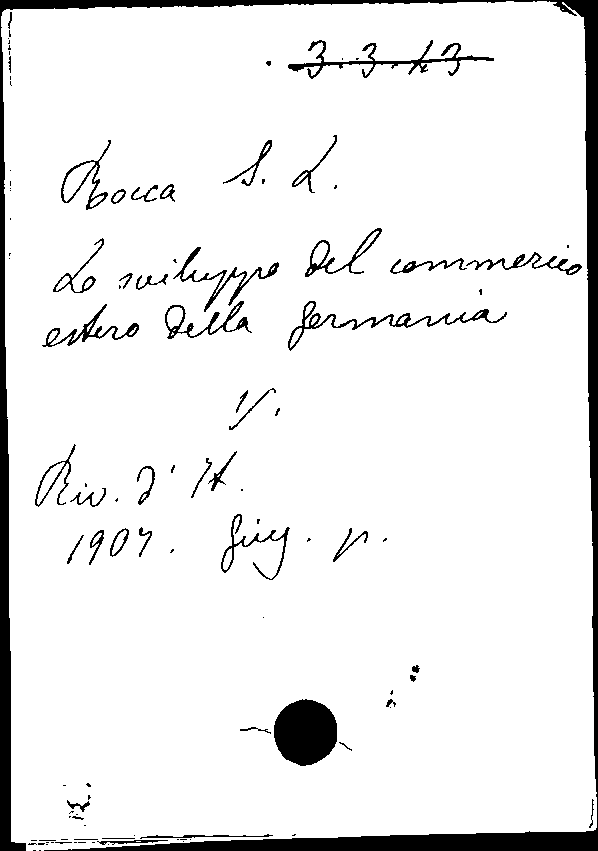 3.3.43
Rocca S. L.
Lo sviluppo del commercio
estero della Germania
V.
Riv. d' It.
1907. Giug. p.